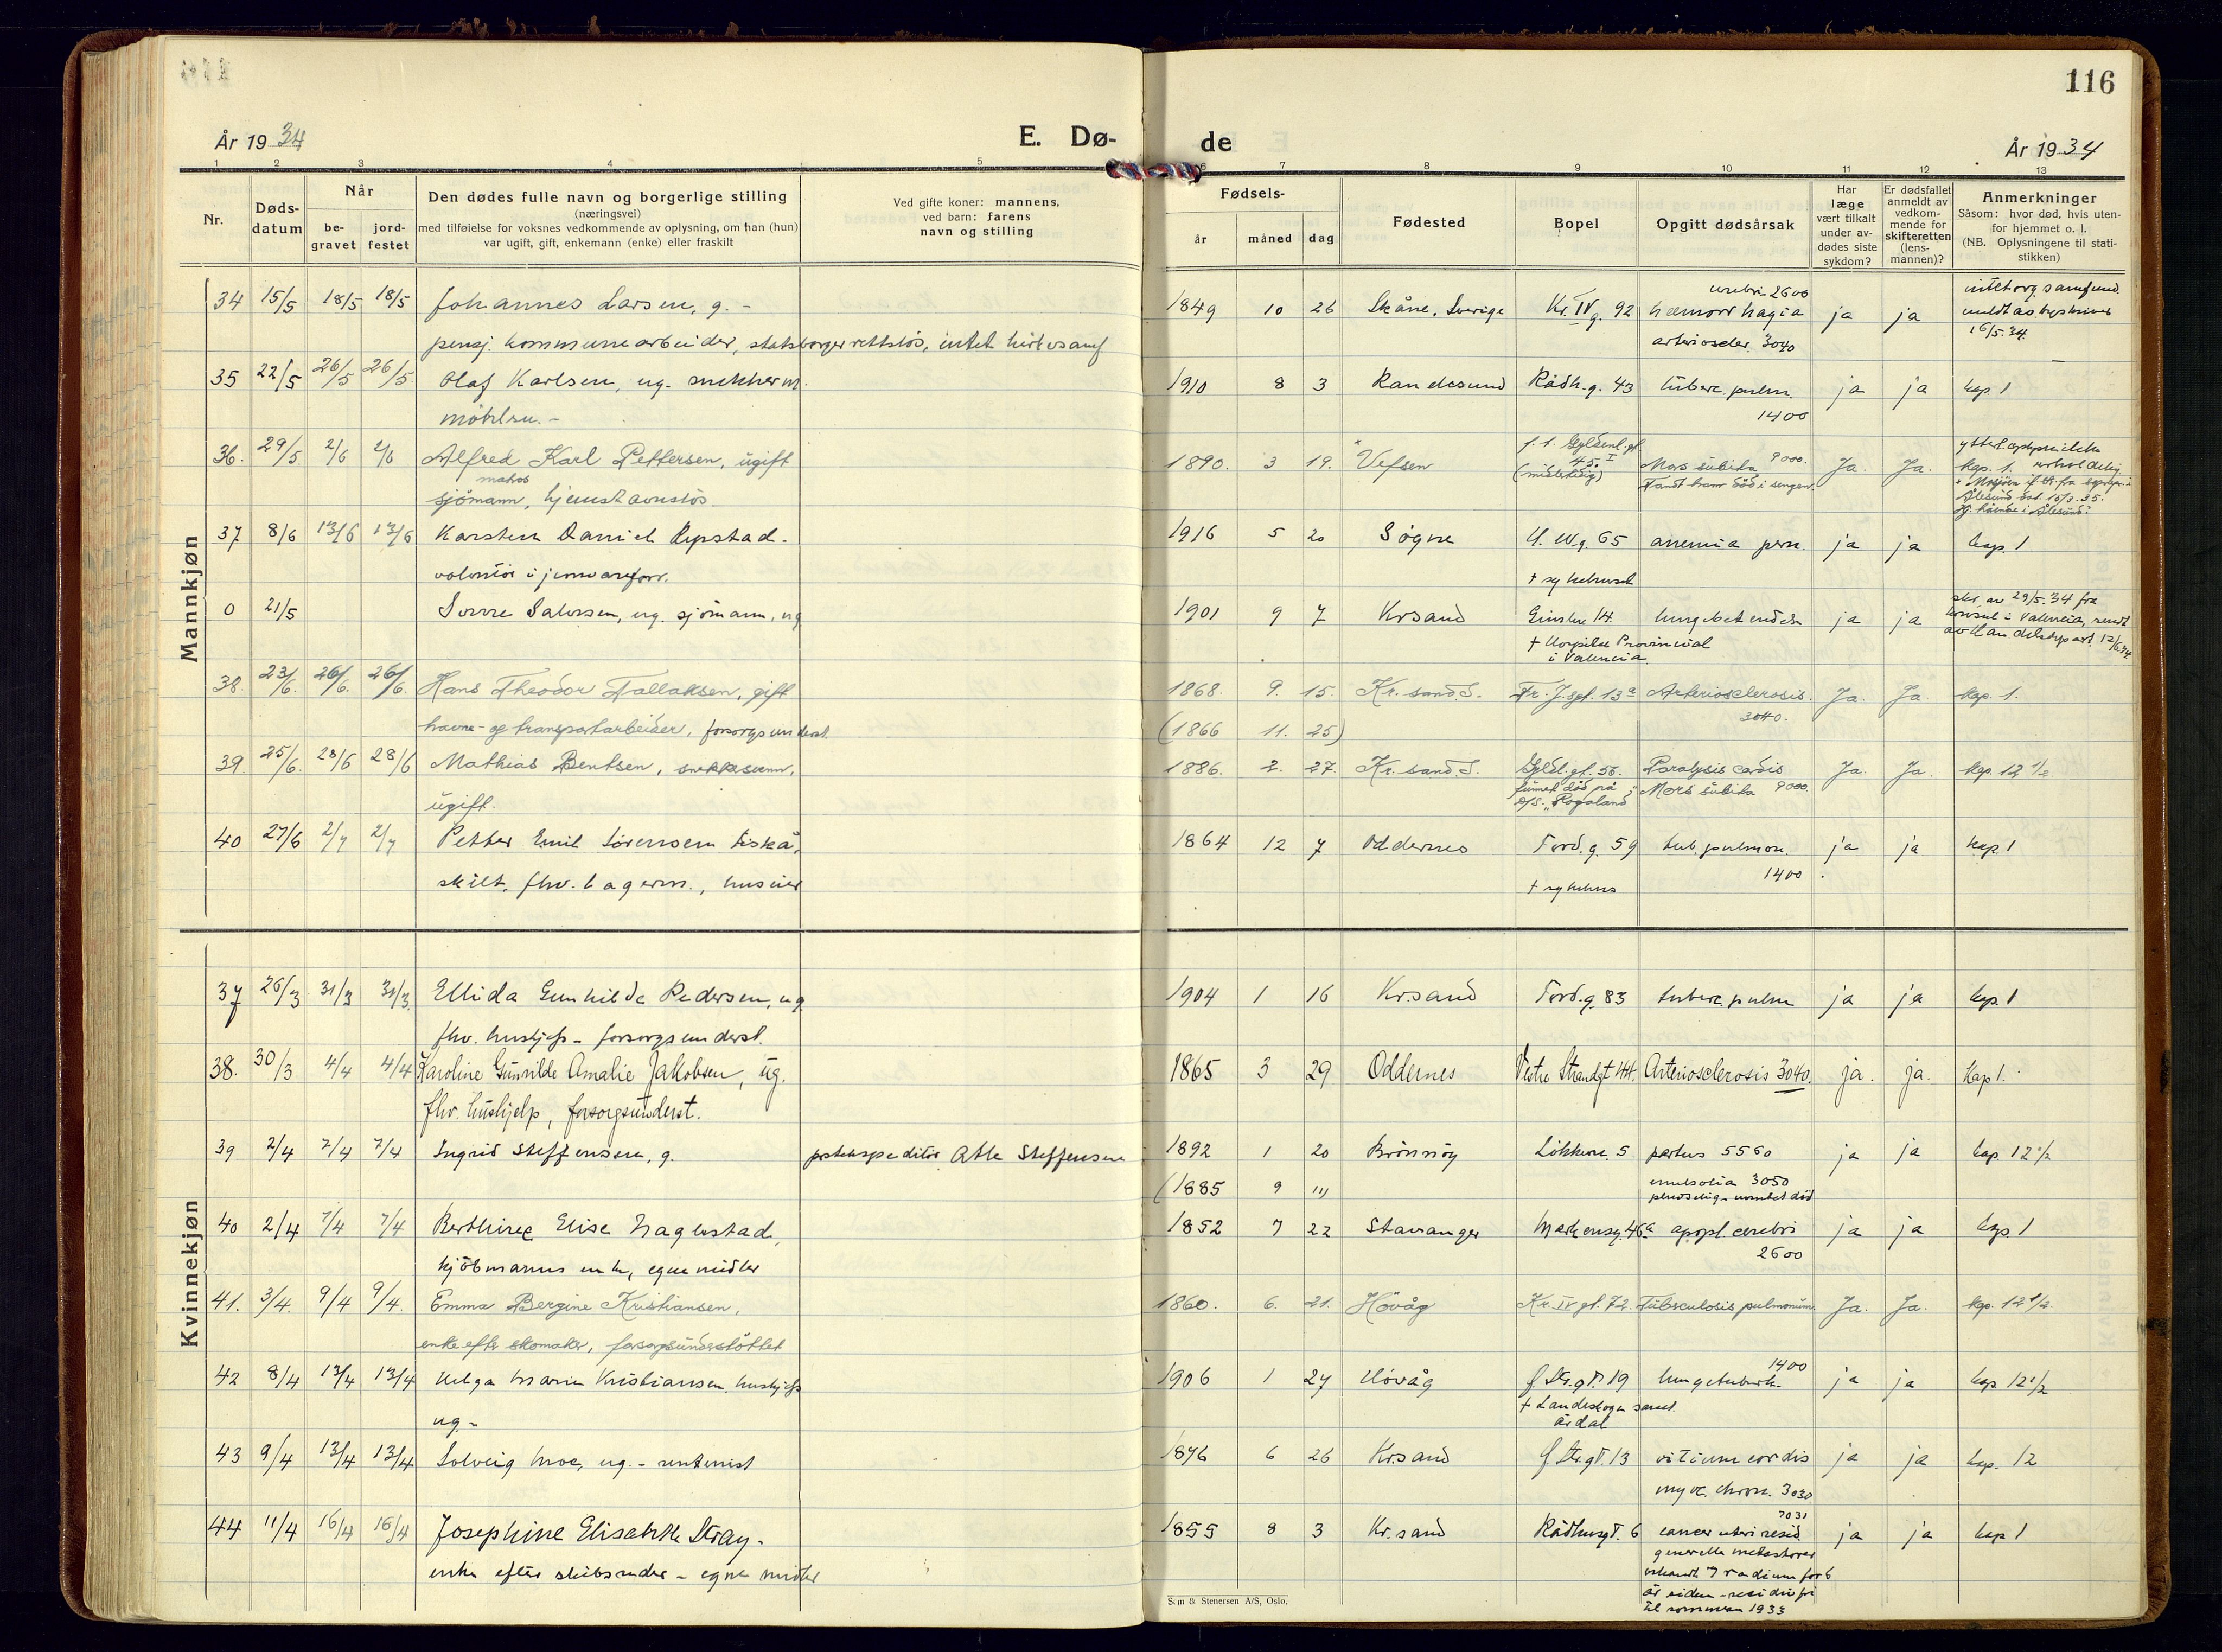 116
År 1934
E. Dø-
de
År 1934
1 2 3 4 5 6 7 8 9 10 11 12 13
Nr.
Døds-
datum
Når
be-
gravet
jord-
festet
Den dødes fulle navn og borgerlige stilling
(næringsvei)
med tilføielse for voksnes vedkommende av oplysning, om han (hun)
var ugift, gift, enkemann (enke) eller fraskilt
Ved gifte koner: mannens,
ved barn: farens
navn og stilling
Fødsels-
år måned dag
Fødested
Bopel
Opgitt dødsårsak
Har
læge
vært tilkalt
under av-
dødes siste
sykdom?
Er dødsfallet
anmeldt av
vedkom-
mende for
skifteretten
(lens-
mannen)?
Anmerkninger
Såsom: hvor død, hvis uten-
for hjemmet o. l.
(NB. Oplysningene til stati-
stikken)
Mannkjøn
34 15/5 18/5 18/5 Johannes Larsen, g. - 1849 10 26 Skåne, Sverige Kr. IV g. 92 hæmorrhagia cerebri 2600 ja ja
pensj. kommunearbeider, statsborgerrettsløs, intet arterioscler. 3040 16/5.34.
35 22/5 26/5 26/5 Olaf Karlsen, ug. snekkerm. 1910 8 3 Randesund Rådh.g. 43 tuberc. pulm. ja ja kap. 1
1400
36. 29/5 2/6 2/6 Alfred Karl Pettersen, ugift 1890. 3 19. Vefsen Gyldenl. gt. 45 I Mors subita 9000. Ja. Ja. kap. 1.
matros
sjømann, hjemstavnsløs (midlertidig) Fandt ham død i sengen.
Ålesund dat. 16/3.35.
37 8/6 13/6 13/6 Karsten Daniel Repstad - 1916 5 20 Søgne 65 anemia pern. ja ja kap. 1
volontør i jernvareforr. † sykehuset
0 21/5 Sverre Salvesen, ug. sjømann, ug 1901 9 7 Krsand 14 lungebetendelse ja ja skr. av 29/5.34 fra
† Hospital Provincial konsul i Valencia, sendt
i Valencia av Handelsdepart. 12/6.34
38. 23/6. 26/6. 26/6. Hans Theodor Tallaksen, gift 1868. 9. 15. Kr.sand S. Fr. J. gt. 13a Arteriosclerosis. Ja. Ja. kap. 1.
havne- og transportarbeider, forsorgsunderst. (1866 11. 25) 3040.
39. 25/6. 28/6 28/6 Mathias Bentsen, 1886. 2. 27. Kr.sand. S. Gyld. gt. 56. Paralysis cordis Ja. Ja. kap. 12 1/2
ugift. funnet død på D/S. "Rogaland" Mors subita 9000.
40 27/6 2/7 2/7 Petter Emil Sørensen Fiskå, 1864 12 7 Oddernes Tord. g. 59 tub. pulmon. ja ja kap. 1
skilt, fhv. lagerm., huseier † sykehus 1400
Kvinnekjøn
37 26/3 31/3 31/3. Ellida Gunhilde Pedersen, ug 1904 1 16 Kr.sand Tord.g. 83 tuberc. pulm ja ja kap. 1
fhv. hushjelp - forsorgsunderst.
38. 30/3 4/4 4/4 Karoline Gunvilde Amalie Jakobsen, ug. 1865 3 29 Oddernes Vestre Strandgt 44. Arteriosclerosis 3040. ja. ja. Kap 1.
fhv. hushjelp, forsorgsunderst.
39 2/4 7/4 7/4 Ingrid Steffensen, g. postekspeditør Atle Steffensen 1892 1 20 Brønnøy Løkkene. 5 partus 5560 ja ja kap. 12 1/2
(1885 9 11) embolia 3050
40 2/4 7/4 7/4 Berthine Elise Nagelstad, 1852 7 22 Stavanger Markensg. 46a apopl. cerebri ja ja kap 1
kjøbmanns enke, egne midler 2600
41. 3/4. 9/4 9/4. Emma Bergine Kristiansen, 1860. 6. 21. Høvåg Kr. IV gt. 72. Tuberculosis pulmonum. Ja. Ja. kap. 12 1/2.
enke efter skomaker, forsorgsunderstøttet
42 8/4 13/4 13/4 Helga Marie Kristiansen, hushjelp 1906 1 24 Høvåg Ø Str. gt. 19 lungetuberk. 1400 ja ja kap. 12 1/2
ug - † Landeskogen sanat.
43 9/4 13/4 13/4 Solveig Moe, ug. - rentenist 1876 6 26 Kr.sand Ø Str. gt. 13 vitium cordis ja ja kap. 12
myoc. chron. 3030
44 11/4 16/4 16/4 Josephine Elisabeth Stray - 1855 8 3 Kr.sand Rådhusgt. 6 cancer uteri resid. 7031 ja ja kap 1
enke efter skibsreder - egne midler generelle metastaser
radium for 6
år siden - residiv fri
til sommeren 1933
Sem & Stenersen A/S, Oslo.